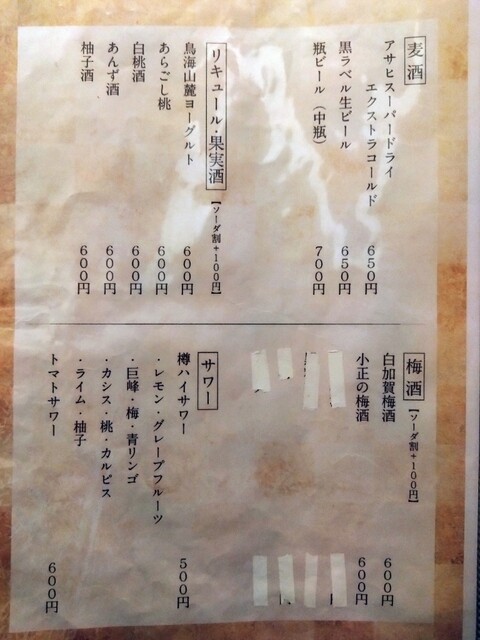 麦酒
アサヒスーパードライ
エクストラコールド 650円
黒ラベル生ビール 650円
瓶ビール（中瓶） 700円
リキュール・果実酒【ソーダ割+100円】
鳥海山麓ヨーグルト 600円
あらごし桃 600円
白桃酒 600円
あんず酒 600円
柚子酒 600円
梅酒【ソーダ割+100円】
白加賀梅酒 600円
小正の梅酒 600円
サワー
樽ハイサワー 500円
・レモン・グレープフルーツ
・巨峰・梅・青リンゴ
・カシス・桃・カルピス
・ライム・柚子
トマトサワー 600円